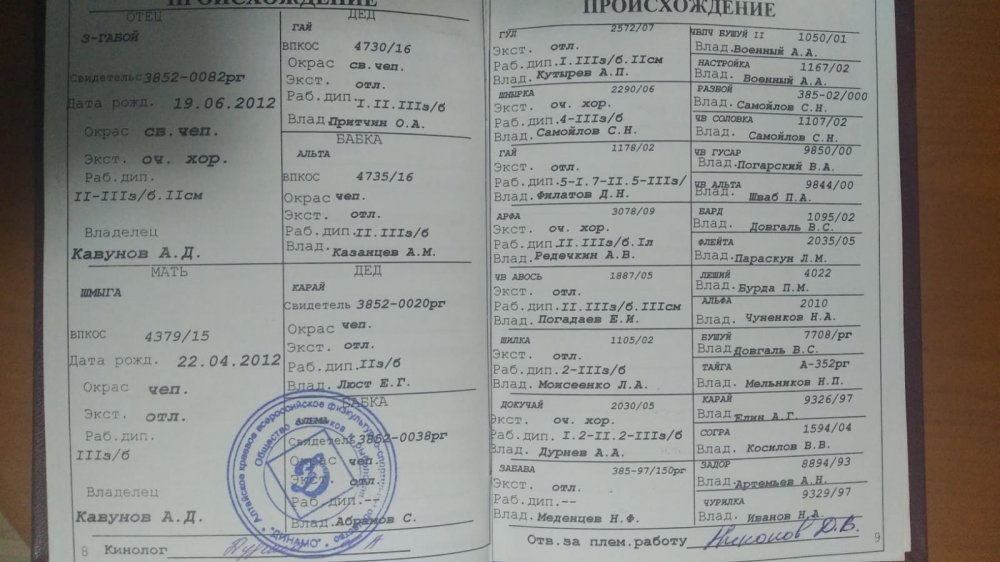 ПРОИСХОЖДЕНИЕ
ОТЕЦ
З-ГАБОЙ
Свидетельс 3852-0082рг
Дата рожд. 19.06.2012
Окрас св.чеп.
Экст. оч. хор.
Раб.дип.
II-IIIз/б.IIсм
Владелец
Кавунов А.Д.
МАТЬ
ШМЫГА
ВПКОС 4379/15
Дата рожд. 22.04.2012
Окрас чеп.
Экст. отл.
Раб.дип.
IIIз/б
Владелец
Кавунов А.Д.
8 Кинолог
ДЕД
ГАЙ
ВПКОС 4730/16
Окрас св.чеп.
Экст. отл.
Раб.дип. I.II.IIIз/б
Влад. Притчин О.А.
БАБКА
АЛЬТА
ВПКОС 4735/16
Окрас чеп.
Экст. отл.
Раб.дип. II.IIIз/б
Влад. Казанцев А.М.
ДЕД
КАРАЙ
Свидетель 3852-0020рг
Окрас чеп.
Экст. отл.
Раб.дип. IIз/б
Влад. Люст Е.Г.
БАБКА
Свидетель 3852-0038рг
Окрас чеп.
Экст. отл.
Раб.дип.--
Влад. Абрамов С.
Алтайское краевое всероссийское
"ДИНАМО"
Общество
Д
ПРОИСХОЖДЕНИЕ
ГУЛ 2572/07
Экст. отл.
Раб.дип. I.IIIз/б.IIсм
Влад. Кутырев А.П.
ШНЫРКА 2290/06
Экст. оч. хор.
Раб.дип. 4-IIIз/б
Влад. Самойлов С.Н.
ГАЙ 1178/02
Экст. отл.
Раб.дип. 5-I.7-II.5-IIIз/
Влад. Филатов Д.Н.
АРФА 3078/09
Экст. оч. хор.
Раб.дип. II.IIIз/б.Iл
Влад. Редечкин А.В.
ЧВ АВОСЬ 1887/05
Экст. отл.
Раб.дип. II.IIIз/б.IIIсм
Влад. Погадаев Е.И.
ШИЛКА 1105/02
Экст. отл.
Раб.дип. 2-IIIз/б
Влад. Моисеенко Л.А.
ДОКУЧАЙ 2030/05
Экст. оч. хор.
Раб.дип. I.2-II.2-IIIз/б
Влад. Дурнев А.А.
ЗАБАВА 385-97/150рг
Экст. отл.
Раб.дип.--
Влад. Меденцев Н.Ф.
ЧВПЧ БУШУЙ II 1050/01
Влад. Военный А.А.
НАСТРОЙКА 1167/02
Влад. Военный А.А.
РАЗВОЙ 385-02/000
Влад. Самойлов С.Н.
ЧВ СОЛОВКА 1107/02
Влад. Самойлов С.Н.
ЧВ ГУСАР 9850/00
Влад. Погарский В.А.
ЧВ АЛЬТА 9844/00
Влад. Шваб П.А.
БАРД 1095/02
Влад. Довгаль В.С.
ФЛЕЙТА 2035/05
Влад. Параскун Л.М.
ЛЕШИЙ 4022
Влад. Бурда П.М.
АЛЬФА 2010
Влад. Чуненков Н.А.
БУШУЙ 7708/рг
Влад. Довгаль В.С.
ТАЙГА А-352рг
Влад. Мельников Н.П.
КАРАЙ 9326/97
Влад. Елин А.Г.
СОГРА 1594/04
Влад. Косилов В.В.
ЗАДОР 8894/93
Влад. Артемьев А.Н.
ЧУРИЛКА 9329/97
Влад. Иванов Н.А.
Отв.за плем.работу Никонов Д.В.
9